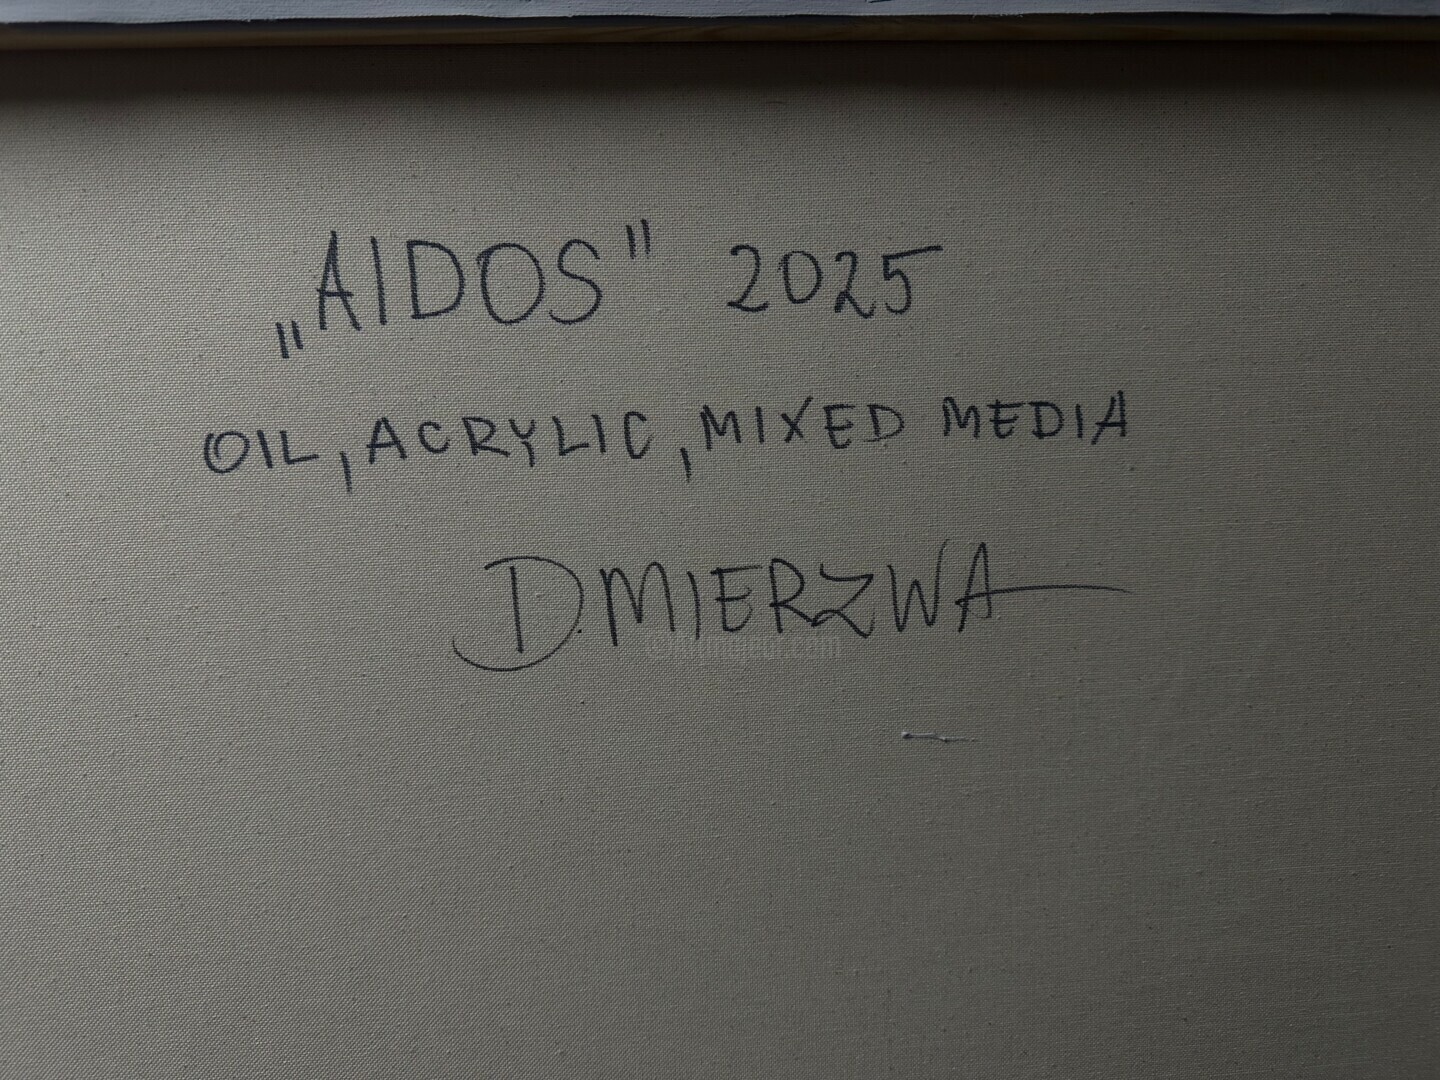 „AIDOS" 2025
OIL, ACRYLIC, MIXED MEDIA
D.MIERZWA
©Artmajeur.com